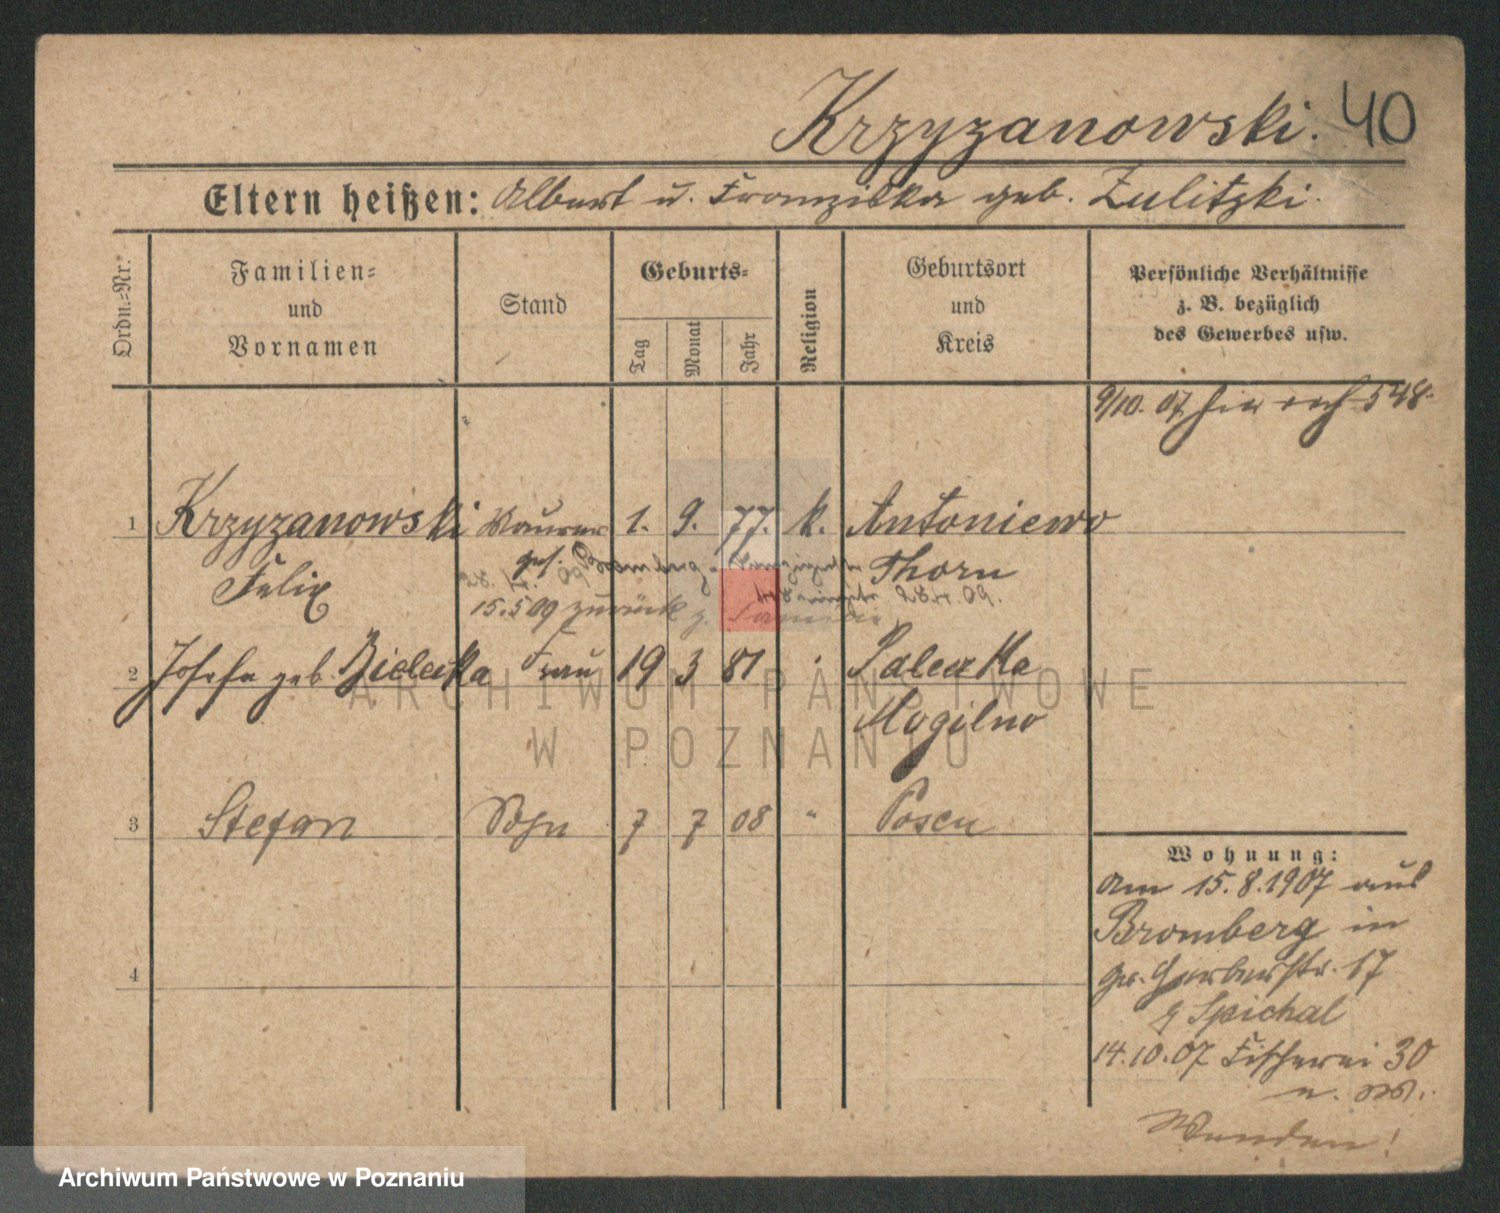 Krzyzanowski. 40
Eltern heißen: Albert u. Franziska geb. Zulitzki.
Ordn.=Nr.
Familien=
und
Vornamen
Stand
Geburts=
Tag
Monat
Jahr
Religion
Geburtsort
und
Kreis
Persönliche Verhältnisse
z. B. bezüglich
des Gewerbes usw.
9/10. 07. 548.
1 Krzyzanowski Maurer 1. 9. 77. k. Antoniewo
Felix Thorn
28. 4. 09 Bromberg 28.4.09.
15.5.09 zurück z. Familie
2 Josefa geb. Bielecka Frau 19 3 81 Palecka
Mogilno
3 Stefan Sohn 7 7 08 " Posen
4
Wohnung:
am 15.8.1907 aus
Bromberg in
Gr. Gerberstr. 17
Spichal
14.10.07 Fischerei 30
Wenden!
ARCHIWUM PAŃSTWOWE
W POZNANIU
Archiwum Państwowe w Poznaniu